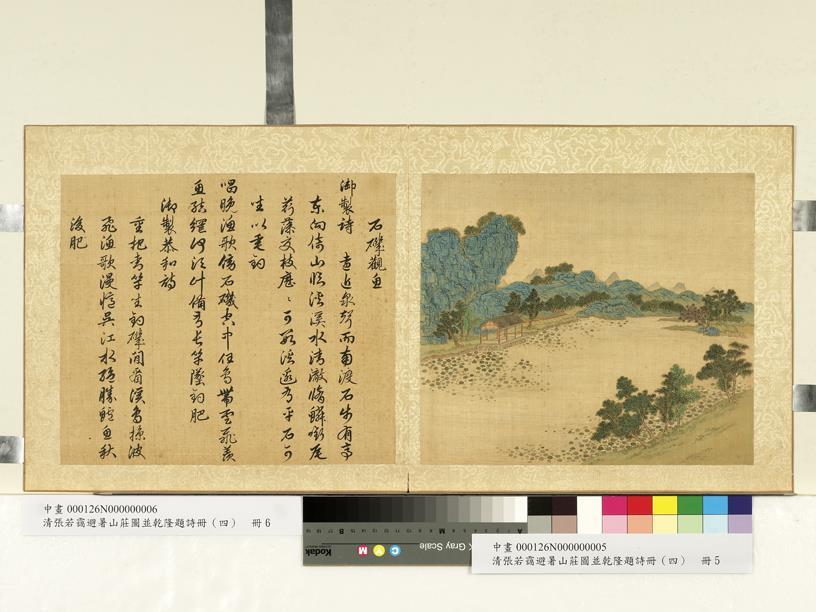 石磯觀魚
御製詩 遠近泉聲而南渡石步有亭
東向倚山臨溪溪水清澈脩鱗銜尾
荇藻交枝歷歷可數溪邊有平石可
坐以垂釣
唱晚漁歌傍石磯空中任鳥帶雲飛羨
魚結網何須計備有長竿墜釣肥
御製恭和詩
重把青竿坐釣磯閒看溪鳥掠波
飛漁歌漫憶吳江水絕勝鱸魚秋
後肥
中畫 000126N000000006
清張若靄避暑山莊圖並乾隆題詩冊（四） 冊 6
Kodak
M Y C
Gray Scale
A
M
B
中畫 000126N000000005
清張若靄避暑山莊圖並乾隆題詩冊（四） 冊 5